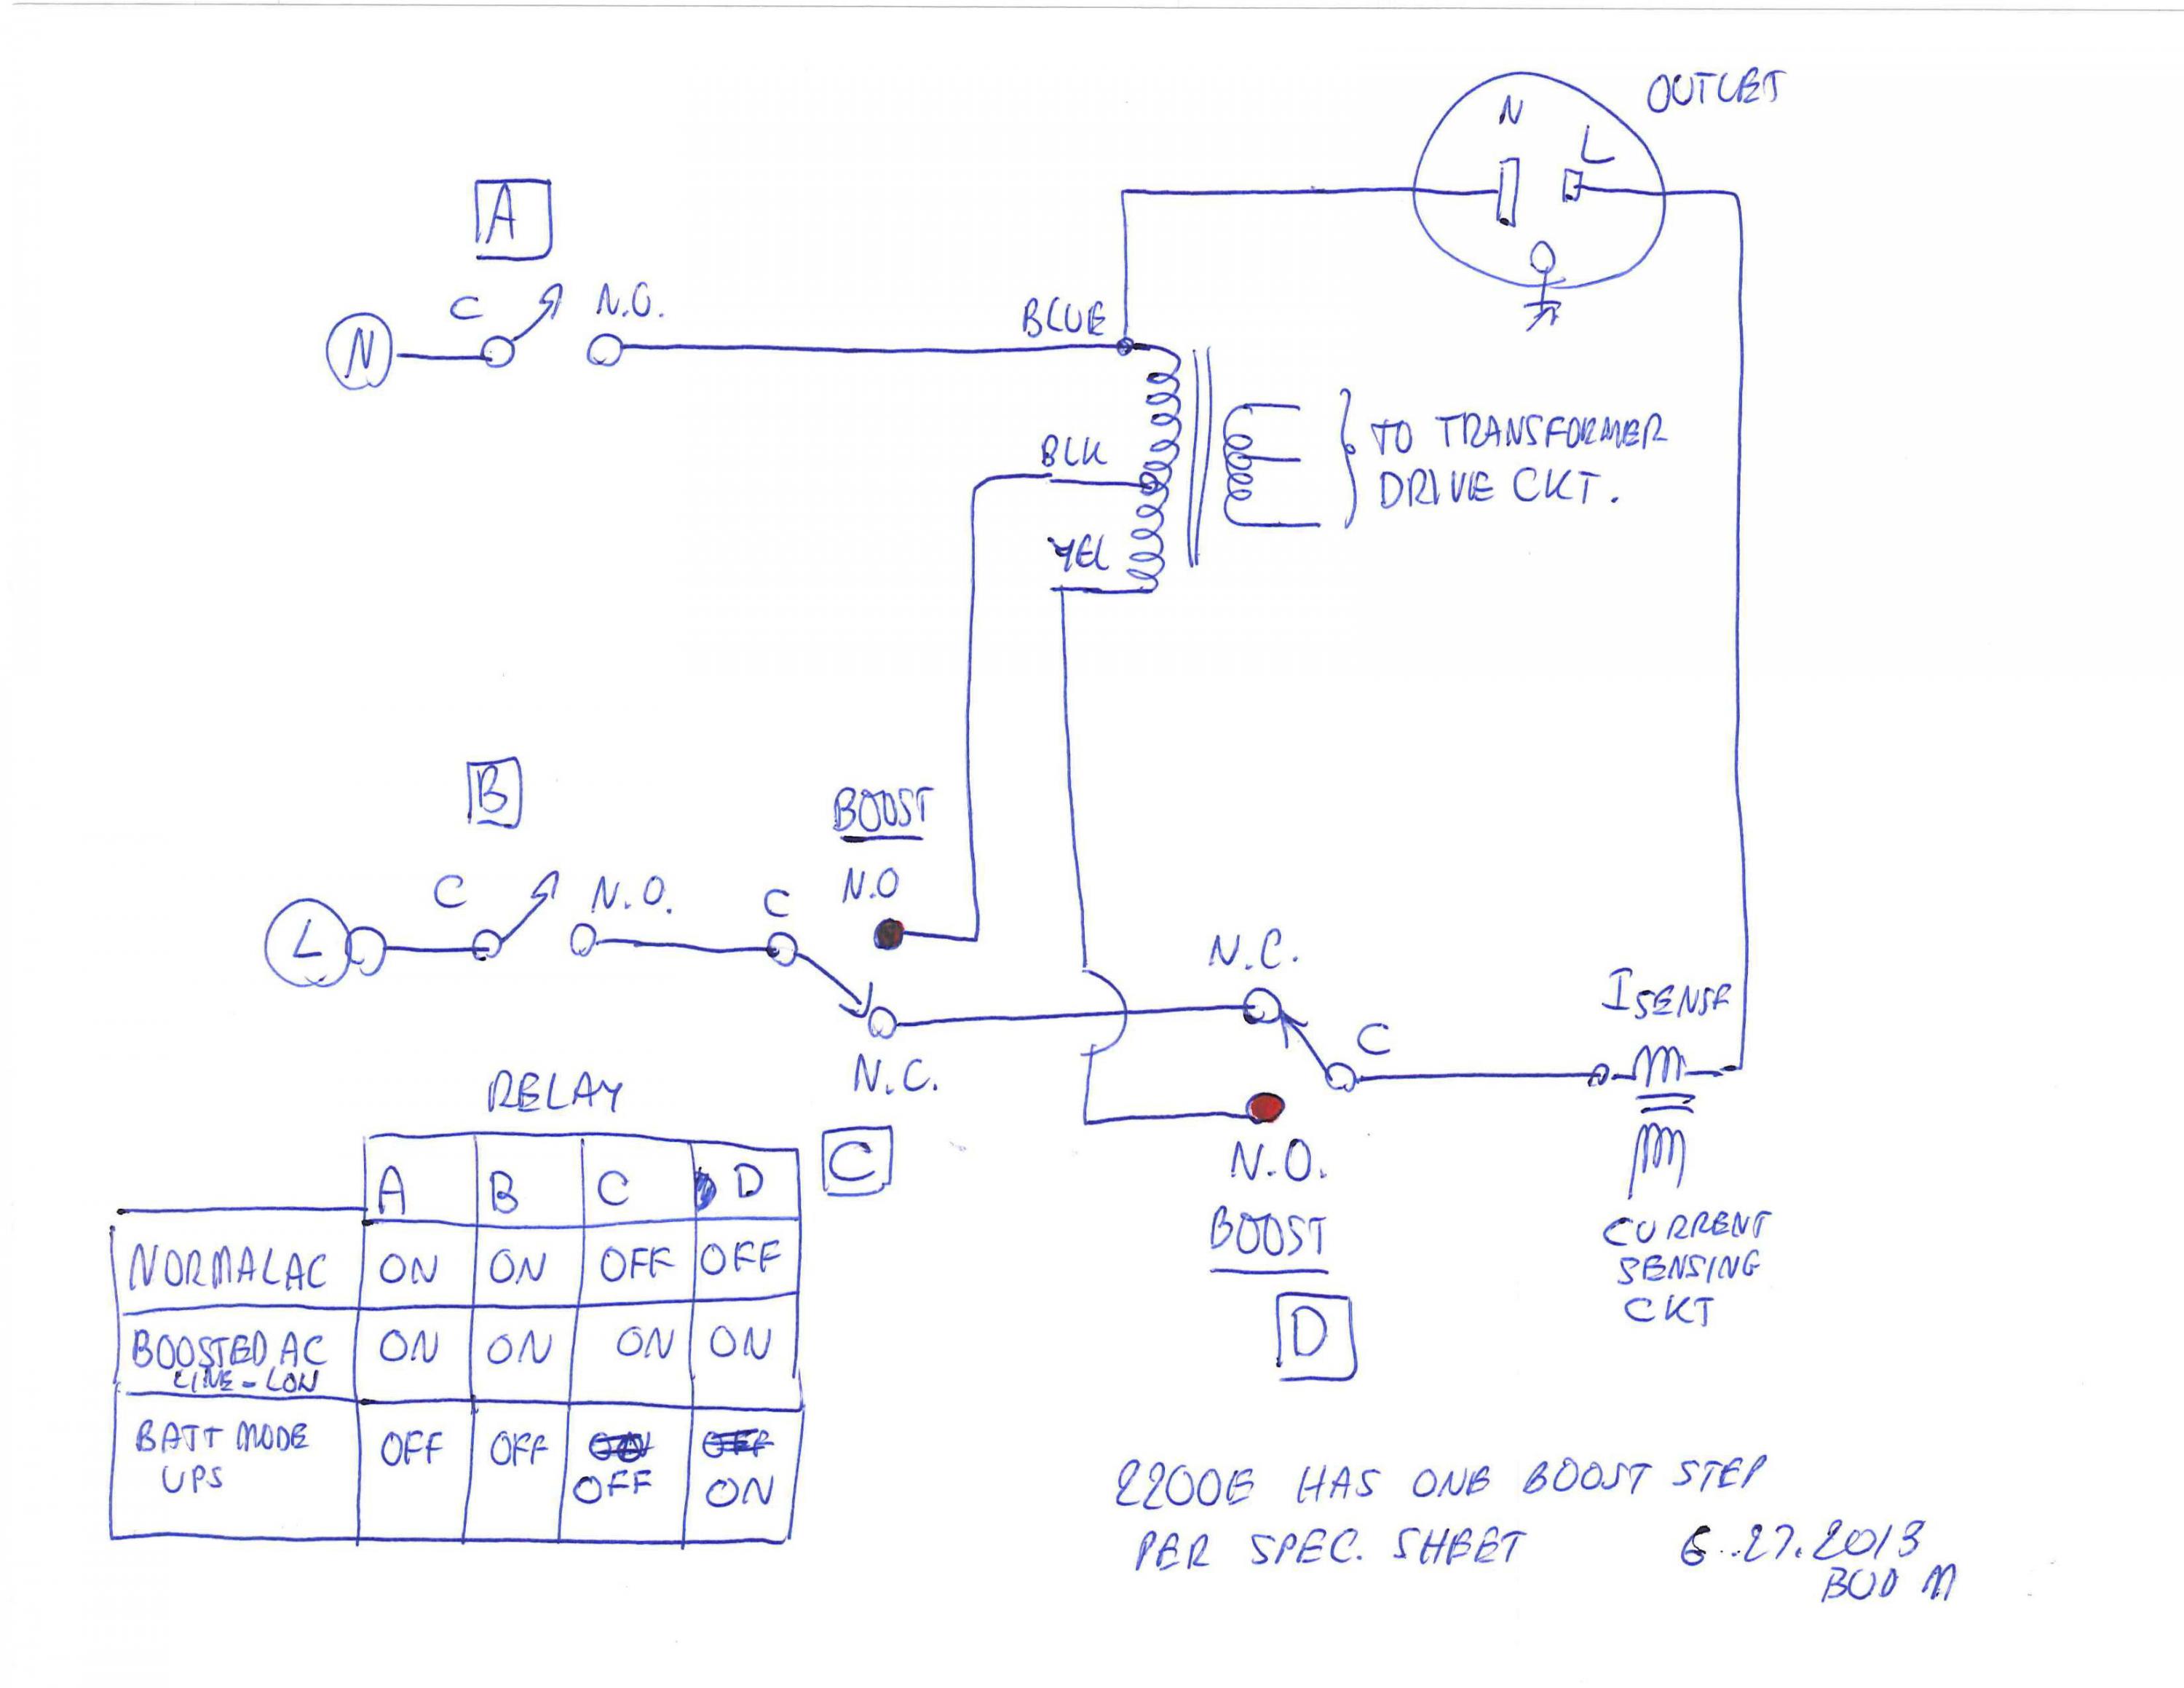 OUTLET
N
L
A
C
N.O.
N
BLUE
BLK
TO TRANSFORMER
DRIVE CKT.
YEL
B
BOOST
C
N.O.
C
N.O
L
N.C.
C
ISENSE
N.C.
RELAY
C
N.O.
BOOST
D
CURRENT
SENSING
CKT
A B C D
NORMAL AC ON ON OFF OFF
BOOSTED AC ON ON ON ON
LINE-LOW
BATT MODE OFF OFF ON OFF
UPS OFF ON
2200E HAS ONE BOOST STEP
PER SPEC. SHEET
6.27.2013
BUD M